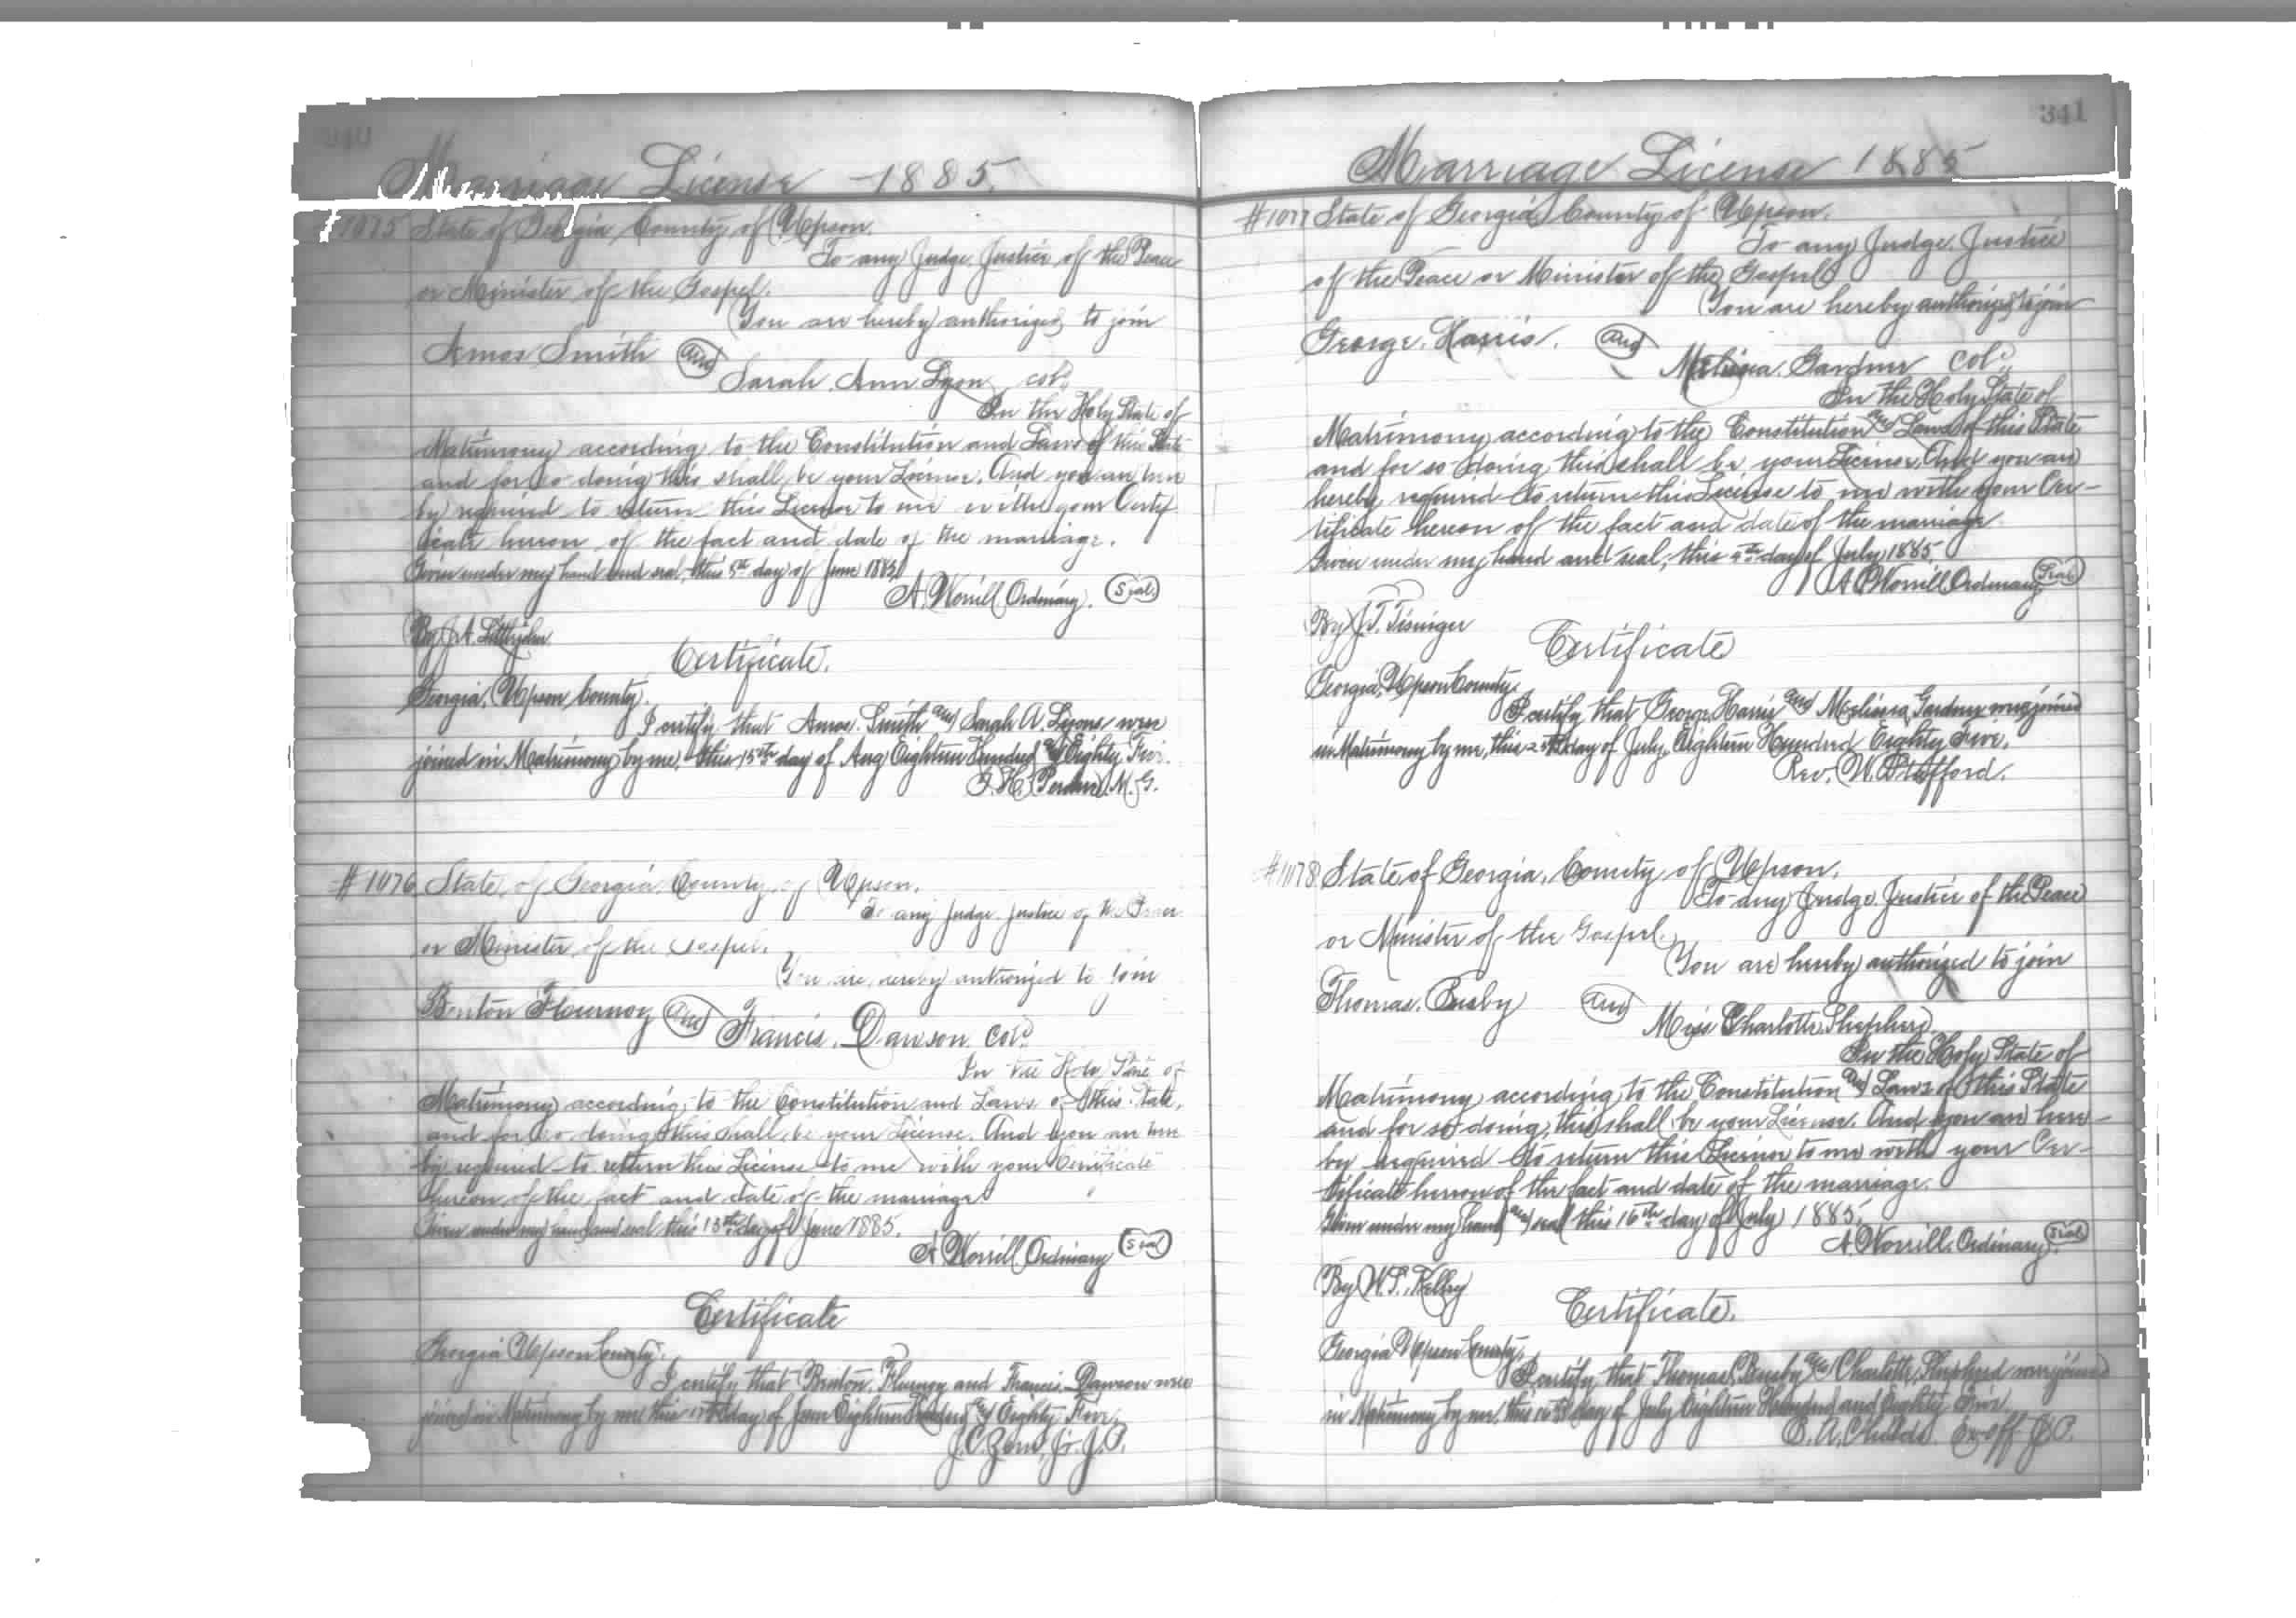 340
Marriage License 1885.
#1075 State of Georgia, County of Upson.
To any Judge, Justice of the Peace
or Minister of the Gospel.
You are hereby authorized to join
Amos Smith and
Sarah Ann Lyon col.
In the Holy State of
Matrimony according to the Constitution and Laws of this State
and for so doing this shall be your License. And you are here
by required to return this License to me with your Certif
icate hereon of the fact and date of the marriage.
Given under my hand and seal, this 5th day of June 1885.
A. Worrill Ordinary. Seal.
By J. A. Littlejohn
Certificate.
Georgia, Upson County.
I certify that Amos Smith and Sarah A. Lyons were
joined in Matrimony by me, this 15th day of Aug Eighteen Hundred and Eighty Five.
H. M. G.
#1076 State of Georgia County of Upson.
To any Judge, Justice of the Peace
or Minister of the Gospel.
You are hereby authorized to join
Benton Flournoy and Francis Dawson Col.
In the Holy State of
Matrimony according to the Constitution and Laws of this State,
and for so doing this shall be your License. And you are here
by required to return this License to me with your Certificate
hereon of the fact and date of the marriage.
Given under my hand and seal this 13th day of June 1885.
A. Worrill Ordinary Seal
Certificate
Georgia Upson County.
I certify that Benton Flurnoy and Francis Dawson were
joined in Matrimony by me this day of June Eighteen Hundred and Eighty Five.
J. C. Jr. J. P.
341
Marriage License 1885
#1077 State of Georgia, County of Upson.
To any Judge, Justice
of the Peace or Minister of the Gospel
You are hereby authorized to join
George Harris. and
Melissia Gardner Col.
In the Holy State of
Matrimony according to the Constitution and Laws of this State
and for so doing this shall be your License, And you are
hereby required to return this License to me with your Cer-
tificate hereon of the fact and date of the marriage.
Given under my hand and seal, this day of July 1885.
A. Worrill Ordinary Seal
By J. T. Tisinger
Certificate
Georgia, Upson County.
I certify that George Harris and Melissia Gardner were joined
in Matrimony by me, this day of July Eighteen Hundred Eighty Five.
Rev. W. Stafford.
#1078 State of Georgia, County of Upson.
To any Judge, Justice of the Peace
or Minister of the Gospel.
You are hereby authorized to join
Thomas Busby and
Miss Charlotte Shepherd.
In the Holy State of
Matrimony according to the Constitution and Laws of this State
and for so doing, this shall be your License. And you are here-
by required to return this License to me with your Cer-
tificate hereon of the fact and date of the marriage.
Given under my hand and seal this 16th day of July 1885.
A. Worrill. Ordinary. Seal
By W. T. Kelley
Certificate.
Georgia Upson County.
I certify that Thomas Busby and Charlotte Shepherd were joined
in Matrimony by me, this 16th day of July Eighteen Hundred and Eighty Five.
E. A. Childs. Ex off J P.